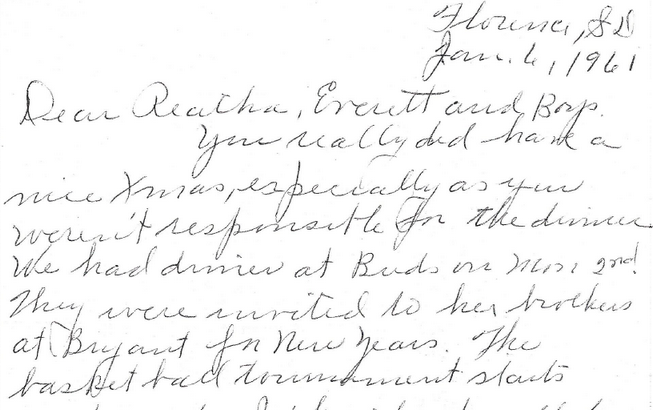 Florence, SD
Jan. 6, 1961
Dear Reatha, Everett and Boys.
You really did have a
nice Xmas, especially as you
weren't responsible for the dinner.
We had dinner at Buds on Mon 2nd.
They were invited to her brothers
at Bryant for New Years. The
basket ball tournament starts